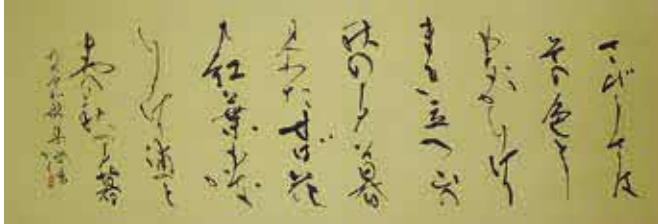 さびしさは
その色とし
もなかりけり
まき立つ山
秋の夕暮
見わたせば花
も紅葉もな
かりけり浦のと
まやの秋の夕暮